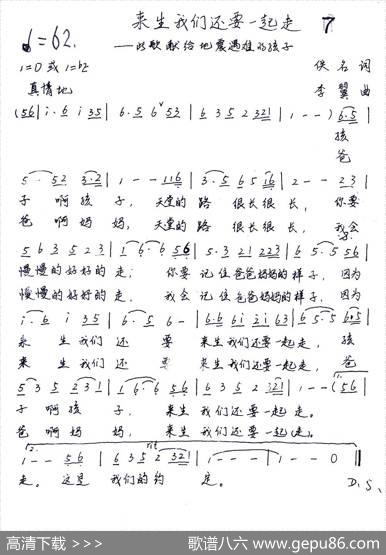 来生我们还要一起走 7
♩=62.
——以歌献给地震遇难的孩子
1=D 或 1=bE
佚名 词
真情地
李翼 曲
(56 | i· 6 i 35 | 6· 5 6 53 | 6 3 5 2 321 | 1 - - ) 6·5 |
孩
爸
5· 52 3·2 | 1 - - 116 | 3· 5 6 5 16 | 2 - - 23 |
子 啊孩 子, 天堂的路 很长很长, 你要
爸 啊妈妈, 天堂的路 很长很长, 我会
5 6 3 5 2 3 | 1 6· 6 56 | 5· 3 21 223 | 6 5· 5 56 |
慢慢的好好的走; 你要记住爸爸妈妈的样子, 因为
慢慢的好好的走; 我会记住爸爸妈妈的样子, 因为
i· 6 i 35 | 6· 5 6 - | 6·6 6i 2i 63 | 6 5· 5 6·5 |
来 生我们 还 要 来生我们还要一起走, 孩
来 生我们 还 要 来生我们还要一起走, 爸
5 3 5 2 31 | 1 6· 6 56 | 6 3 5 2 321 | 1 - - (56 |
子 啊孩 子, 来生我们还要一起走。
爸 啊妈 妈, 来生我们还要一起(走)。
1 - - 56 | 6 3 5 2 321 | 1 - - - | 1 - - 0 ‖
走。 这是 我们的约 定。 D.S.
高清下载 >>>
歌谱八六 www.gepu86.com